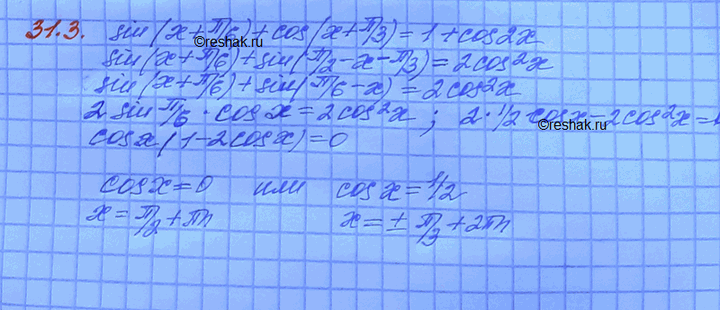 31.3. sin(x+π/6)+cos(x+π/3)=1+cos2x
©reshak.ru
sin(x+π/6)+sin(π/2-x-π/3)=2cos²x
sin(x+π/6)+sin(π/6-x)=2cos²x
2 sin π/6 · cosx=2cos²x ; 2·1/2 cosx-2cos²x=0
©reshak.ru
cosx(1-2cosx)=0
cosx=0 или cosx=1/2
x=π/2+πn x=±π/3+2πn